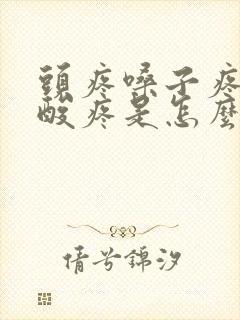 頭疼嗓子疼
酸疼是怎麼
倩兮錦汐